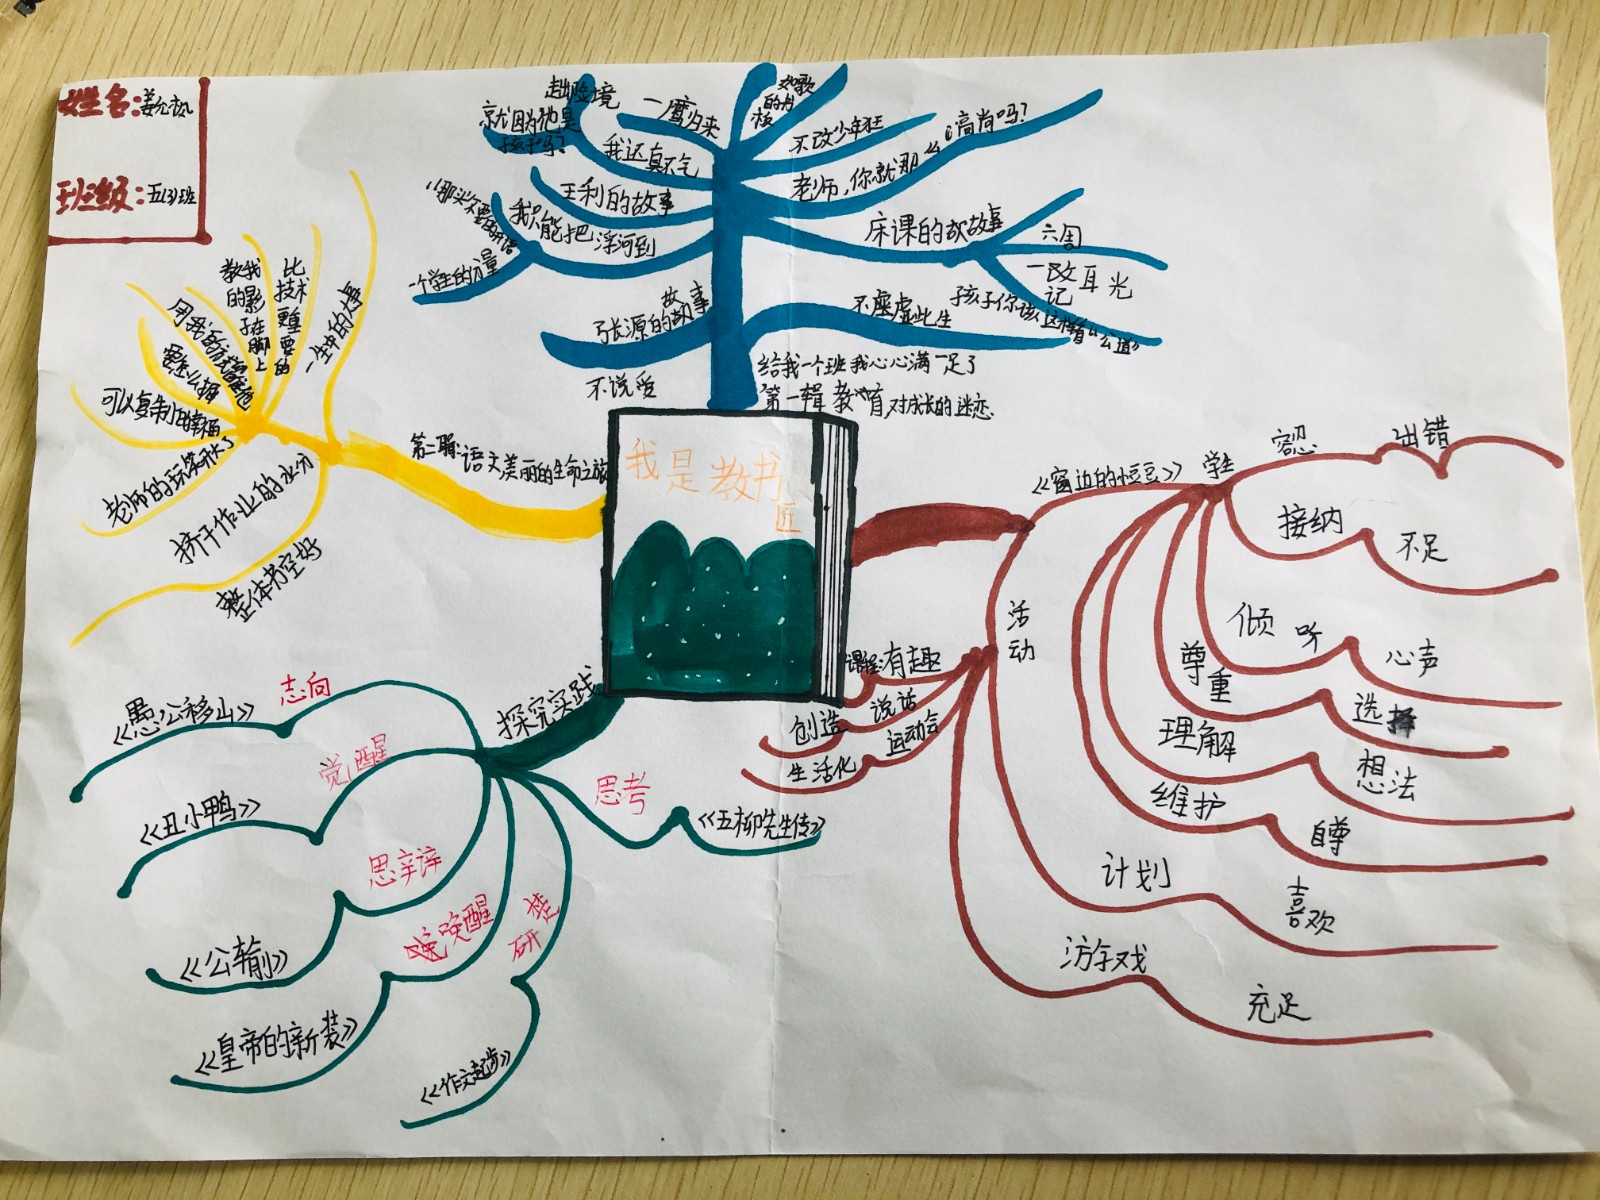 姓名:
班级:五(3)班
趟险境
就因为他是
孩子吗?
一鹰归来
我还真不气
如歌
的
不改少年狂
老师,你就那么高尚吗?
王利的故事
我只能把浮河到
一个学生的分量
床课的故事
六周
一改耳光
记
孩子你该这样看“公道”
故事
张源的故事
不说爱
不虚虚此生
给我一个班我心心满足了
第一辑教育对成长的迷恋
我是教书
匠
第二辑:语文美丽的生命之旅
一生中的大事
比
技术
更重
要
的
教我
的影
子在
脚上
可以复制的幸福
老师的玩笑开大了
挤干作业的水分
整体书空好
探究实践
志向
《愚公移山》
觉醒
《丑小鸭》
思辨
《公输》
唤醒
《皇帝的新装》
研楚
《作文起步》
思考
《五柳先生传》
《窗边的小豆豆》
学生
容忍
出错
接纳
不足
倾听
心声
尊重
选择
理解
想法
维护
自尊
活动
计划
喜欢
游戏
充足
课程:有趣
说话
创造
运动会
生活化